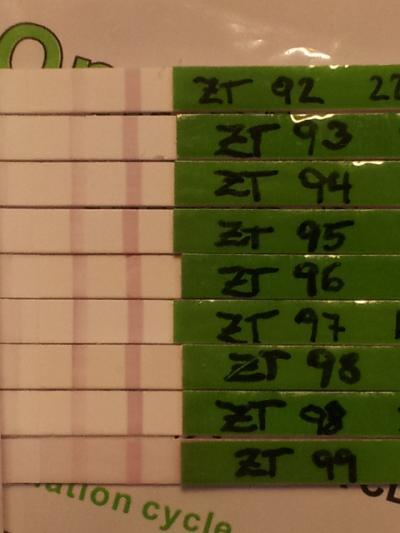 On
ZT 92 27
ZT 93
ZT 94
ZT 95
ZT 96
ZT 97
ZT 98
ZT 98
ZT 99
cycle